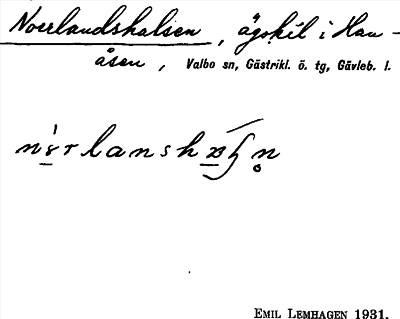 Norrlandshalsen, ägoskil i Han-
åsen, Valbo sn, Gästrikl. ö. tg, Gävleb. l.
EMIL LEMHAGEN 1931.